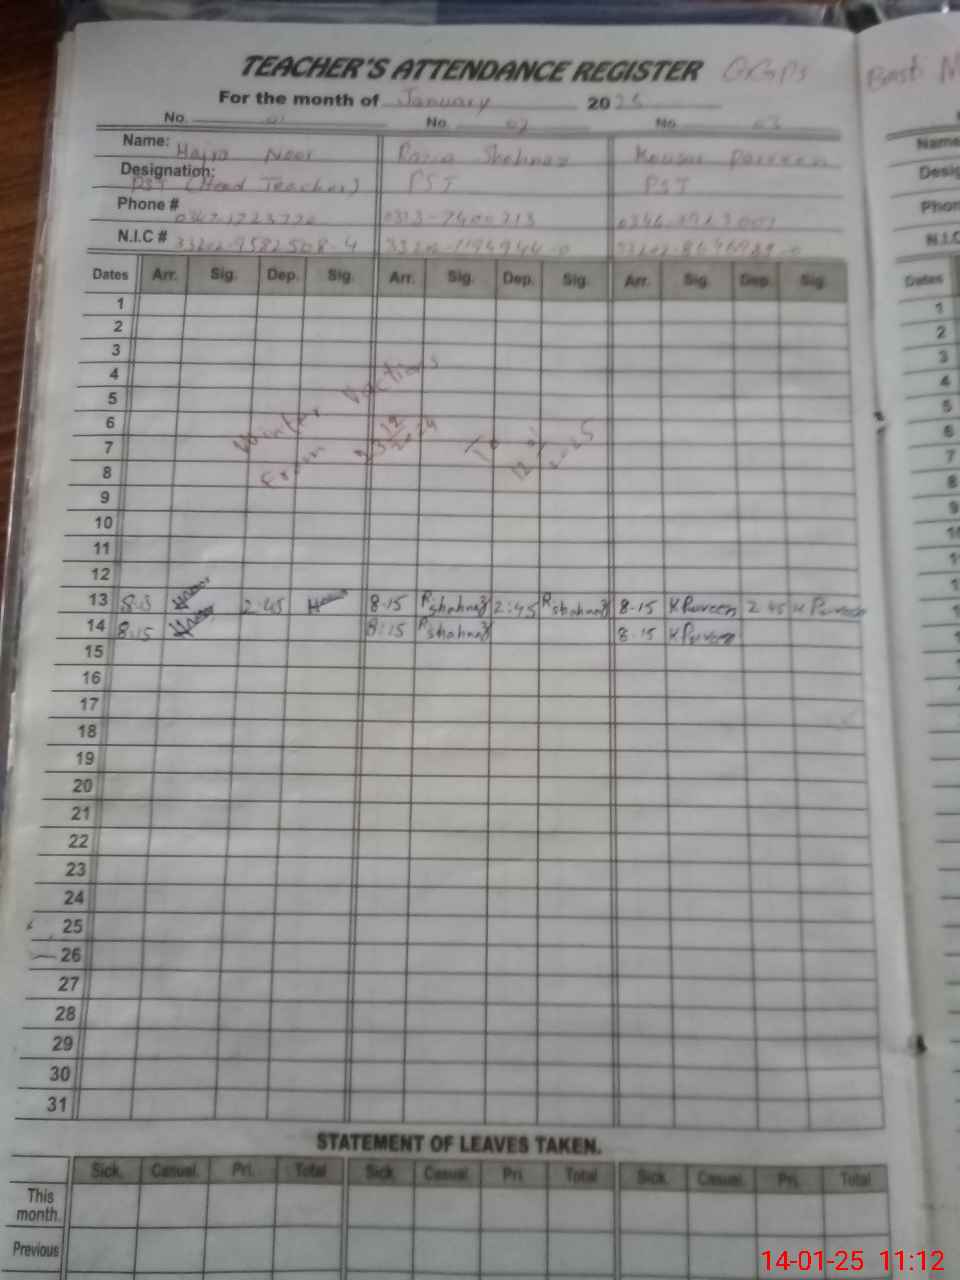 TEACHER'S ATTENDANCE REGISTER GGPS
For the month of January 2025
No. 01 No. 02 No. 03
Name: Hajra Noor Razia Shahnaz Kousar Parveen
Designation: PST (Head Teacher) PST PST
Phone #
N.I.C # 33202-9582508-4
Dates Arr. Sig. Dep. Sig. Arr. Sig. Dep. Sig. Arr. Sig. Dep. Sig.
1
2
3
4
5
6
7
8
9
10
11
12
Winter Vactions
From 23 12 2024 To 12 01 2025
13 8.15 2:45 8.15 R shahnaz 2:45 R shahnaz 8.15 K Parveen 2 45 K Parveen
14 8.15 8:15 R shahnaz 8.15 K Parveen
15
16
17
18
19
20
21
22
23
24
25
26
27
28
29
30
31
STATEMENT OF LEAVES TAKEN.
Sick. Casual. Pri. Total Sick. Casual. Pri. Total Sick. Casual. Pri. Total
This month.
Previous
Basti
Name
Desig
Phon
N.I.C
Dates
1
2
3
4
5
6
7
8
9
14-01-25 11:12